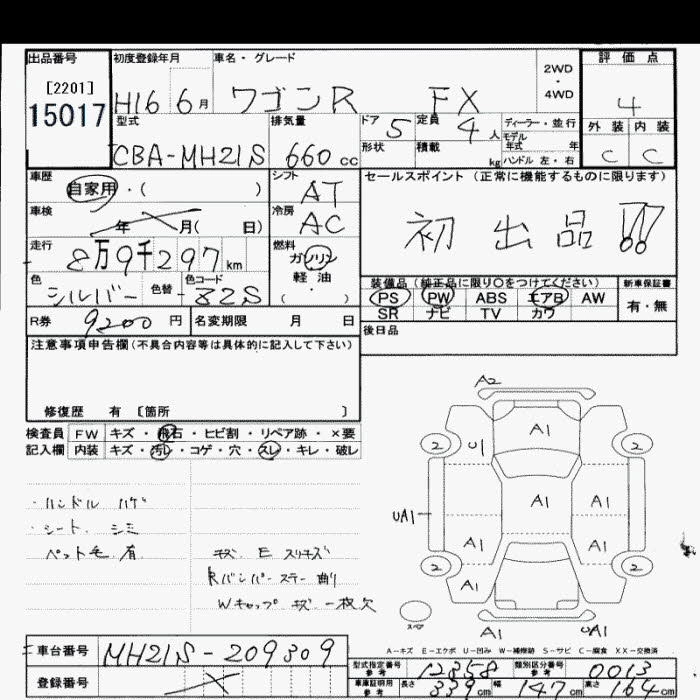 出品番号 初度登録年月 車名・グレード 評価点
[2201]
15017
H16 6月 ワゴンR FX 2WD・4WD 4
型式 排気量 ドア 5 定員 4人 ディーラー・並行 外装 内装
モデル年式 年
CBA-MH21S 660cc 形状 積載 kg ハンドル 左・右 C C
車歴 シフト セールスポイント(正常に機能するものに限ります)
自家用・( ) AT
車検 冷房 初出品!!
年 月( 日) AC
走行 燃料
8万9千297km ガソリン
軽油
(・)
色 色替 色コード 装備品(純正品に限り〇をつけてください) 新車保証書
シルバー Z2S PS PW ABS エアB AW 有・無
SR ナビ TV カワ
R券 9200円 名変期限 月 日 後日品
注意事項申告欄(不具合内容等は具体的に記入して下さい)
修復歴 有 [箇所 ]
検査員 FW キズ・飛石・ヒビ割・リペア跡・×要
記入欄 内装 キズ・汚れ・コゲ・穴・スレ・キレ・破レ
A2
A1
2 U1 2
・ハンドル ハゲ
A1 A1
UA1
・シート シミ
A1 A1
ペット毛 有 キズ E スリキズ
2 2
A1 A1
Rバンパーステー曲り
Wキャップ キズ 一枚欠
スペア
A1 UA1
A-キズ E-エクボ U-凹み W-補修跡 S-サビ C-腐食 XX-交換済
車台番号 MH21S-209309
型式指定番号 参考 12858 類別区分番号 参考 0013
登録番号
車庫証明用 参考 長さ 339cm 幅 147cm 高さ 164cm